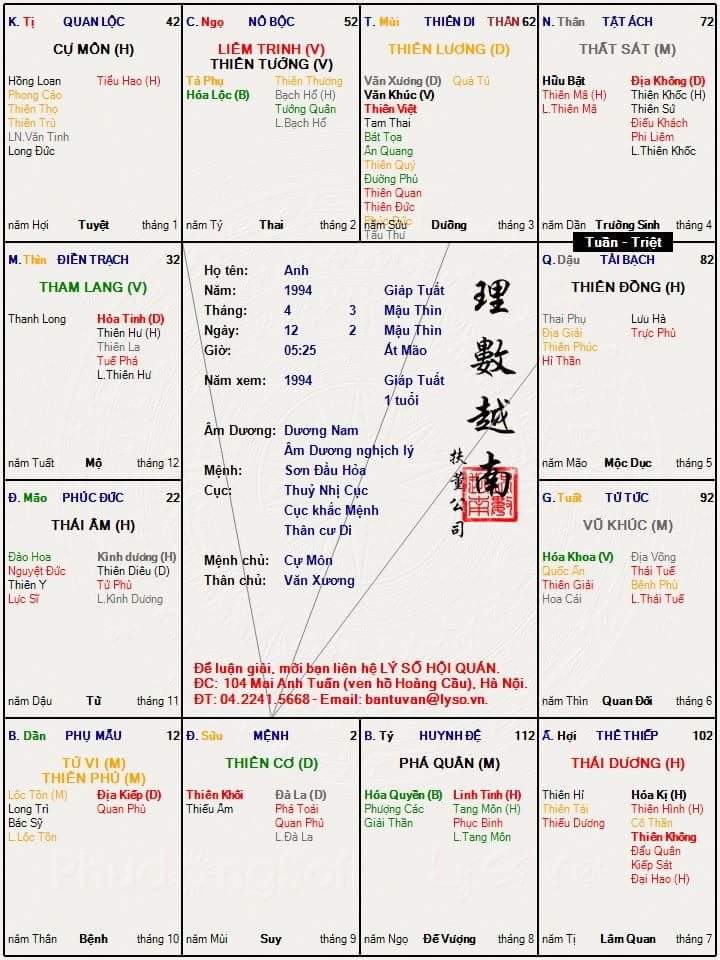 K. Tị QUAN LỘC 42
CỰ MÔN (H)
Hồng Loan Tiểu Hao (H)
Phong Cáo
Thiên Thọ
Thiên Trù
LN.Văn Tinh
Long Đức
năm Hợi Tuyệt tháng 1
C. Ngọ NÔ BỘC 52
LIÊM TRINH (V)
THIÊN TƯỚNG (V)
Tả Phụ Thiên Thương
Hóa Lộc (B) Bạch Hổ (H)
Tướng Quân
L.Bạch Hổ
năm Tý Thai tháng 2
T. Mùi THIÊN DI THÂN 62
THIÊN LƯƠNG (D)
Văn Xương (D) Quả Tú
Văn Khúc (V)
Thiên Việt
Tam Thai
Bát Tọa
Ân Quang
Thiên Quý
Đường Phù
Thiên Quan
Thiên Đức
Phúc Đức
Tấu Thư
năm Sửu Dưỡng tháng 3
N. Thân TẬT ÁCH 72
THẤT SÁT (M)
Hữu Bật Địa Không (D)
Thiên Mã (H) Thiên Khốc (H)
L.Thiên Mã Thiên Sứ
Điếu Khách
Phi Liêm
L.Thiên Khốc
năm Dần Trường Sinh tháng 4
Tuần - Triệt
M. Thìn ĐIỀN TRẠCH 32
THAM LANG (V)
Thanh Long Hỏa Tinh (D)
Thiên Hư (H)
Thiên La
Tuế Phá
L.Thiên Hư
năm Tuất Mộ tháng 12
Họ tên: Anh
Năm: 1994 Giáp Tuất
Tháng: 4 3 Mậu Thìn
Ngày: 12 2 Mậu Thìn
Giờ: 05:25 Ất Mão
Năm xem: 1994 Giáp Tuất
1 tuổi
Âm Dương: Dương Nam
Âm Dương nghịch lý
Mệnh: Sơn Đầu Hỏa
Cục: Thuỷ Nhị Cục
Cục khắc Mệnh
Thân cư Di
Mệnh chủ: Cự Môn
Thân chủ: Văn Xương
理數越南
扶董公司
Để luận giải, mời bạn liên hệ LÝ SỐ HỘI QUÁN.
ĐC: 104 Mai Anh Tuấn (ven hồ Hoàng Cầu), Hà Nội.
ĐT: 04.2241.5668 - Email: bantuvan@lyso.vn.
Q. Dậu TÀI BẠCH 82
THIÊN ĐỒNG (H)
Thai Phụ Lưu Hà
Địa Giải Trực Phù
Thiên Phúc
Hỉ Thần
năm Mão Mộc Dục tháng 5
Đ. Mão PHÚC ĐỨC 22
THÁI ÂM (H)
Đào Hoa Kình dương (H)
Nguyệt Đức Thiên Diêu (D)
Thiên Y Tử Phù
Lực Sĩ L.Kình Dương
năm Dậu Tử tháng 11
G. Tuất TỬ TỨC 92
VŨ KHÚC (M)
Hóa Khoa (V) Địa Võng
Quốc Ấn Thái Tuế
Thiên Giải Bệnh Phù
Hoa Cái L.Thái Tuế
năm Thìn Quan Đới tháng 6
B. Dần PHỤ MẪU 12
TỬ VI (M)
THIÊN PHỦ (M)
Lộc Tồn (M) Địa Kiếp (D)
Long Trì Quan Phù
Bác Sỹ
L.Lộc Tồn
năm Thân Bệnh tháng 10
Đ. Sửu MỆNH 2
THIÊN CƠ (D)
Thiên Khôi Đà La (D)
Thiếu Âm Phá Toái
Quan Phủ
L.Đà La
năm Mùi Suy tháng 9
B. Tý HUYNH ĐỆ 112
PHÁ QUÂN (M)
Hóa Quyền (B) Linh Tinh (H)
Phượng Các Tang Môn (H)
Giải Thần Phục Binh
L.Tang Môn
năm Ngọ Đế Vượng tháng 8
Ấ. Hợi THÊ THIẾP 102
THÁI DƯƠNG (H)
Thiên Hỉ Hóa Kị (H)
Thiên Tài Thiên Hình (H)
Thiếu Dương Cô Thần
Thiên Không
Đẩu Quân
Kiếp Sát
Đại Hao (H)
năm Tị Lâm Quan tháng 7